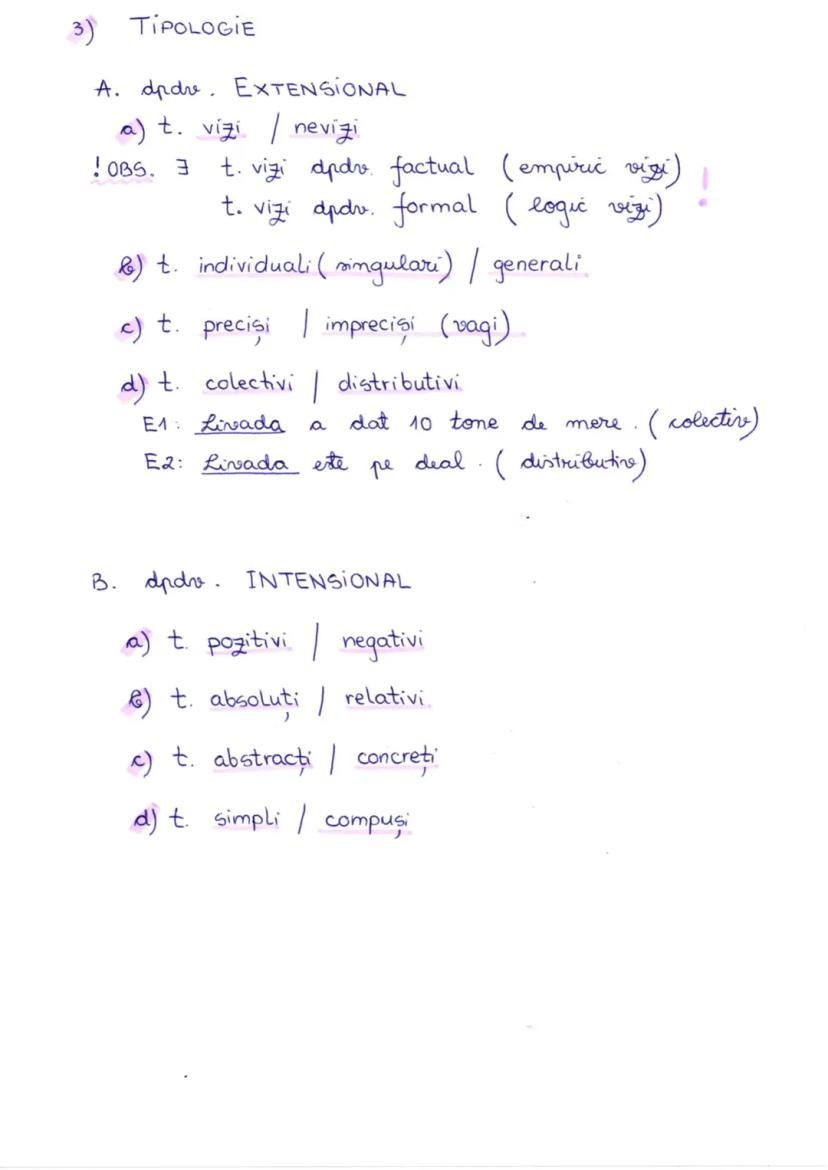 3) TIPOLOGIE
A. dpdv. EXTENSIONAL
a) t. vizi / nevizi
! OBS. ∃ t. vizi dpdv. factual (empiric vizi) !
t. vizi dpdv. formal (logic vizi)
b) t. individuali (singulari) / generali
c) t. preciși / impreciși (vagi)
d) t. colectivi / distributivi
E1: Livada a dat 10 tone de mere. (colectiv)
E2: Livada este pe deal. (distributiv)
B. dpdv. INTENSIONAL
a) t. pozitivi / negativi
b) t. absoluți / relativi
c) t. abstracți / concreți
d) t. simpli / compuși